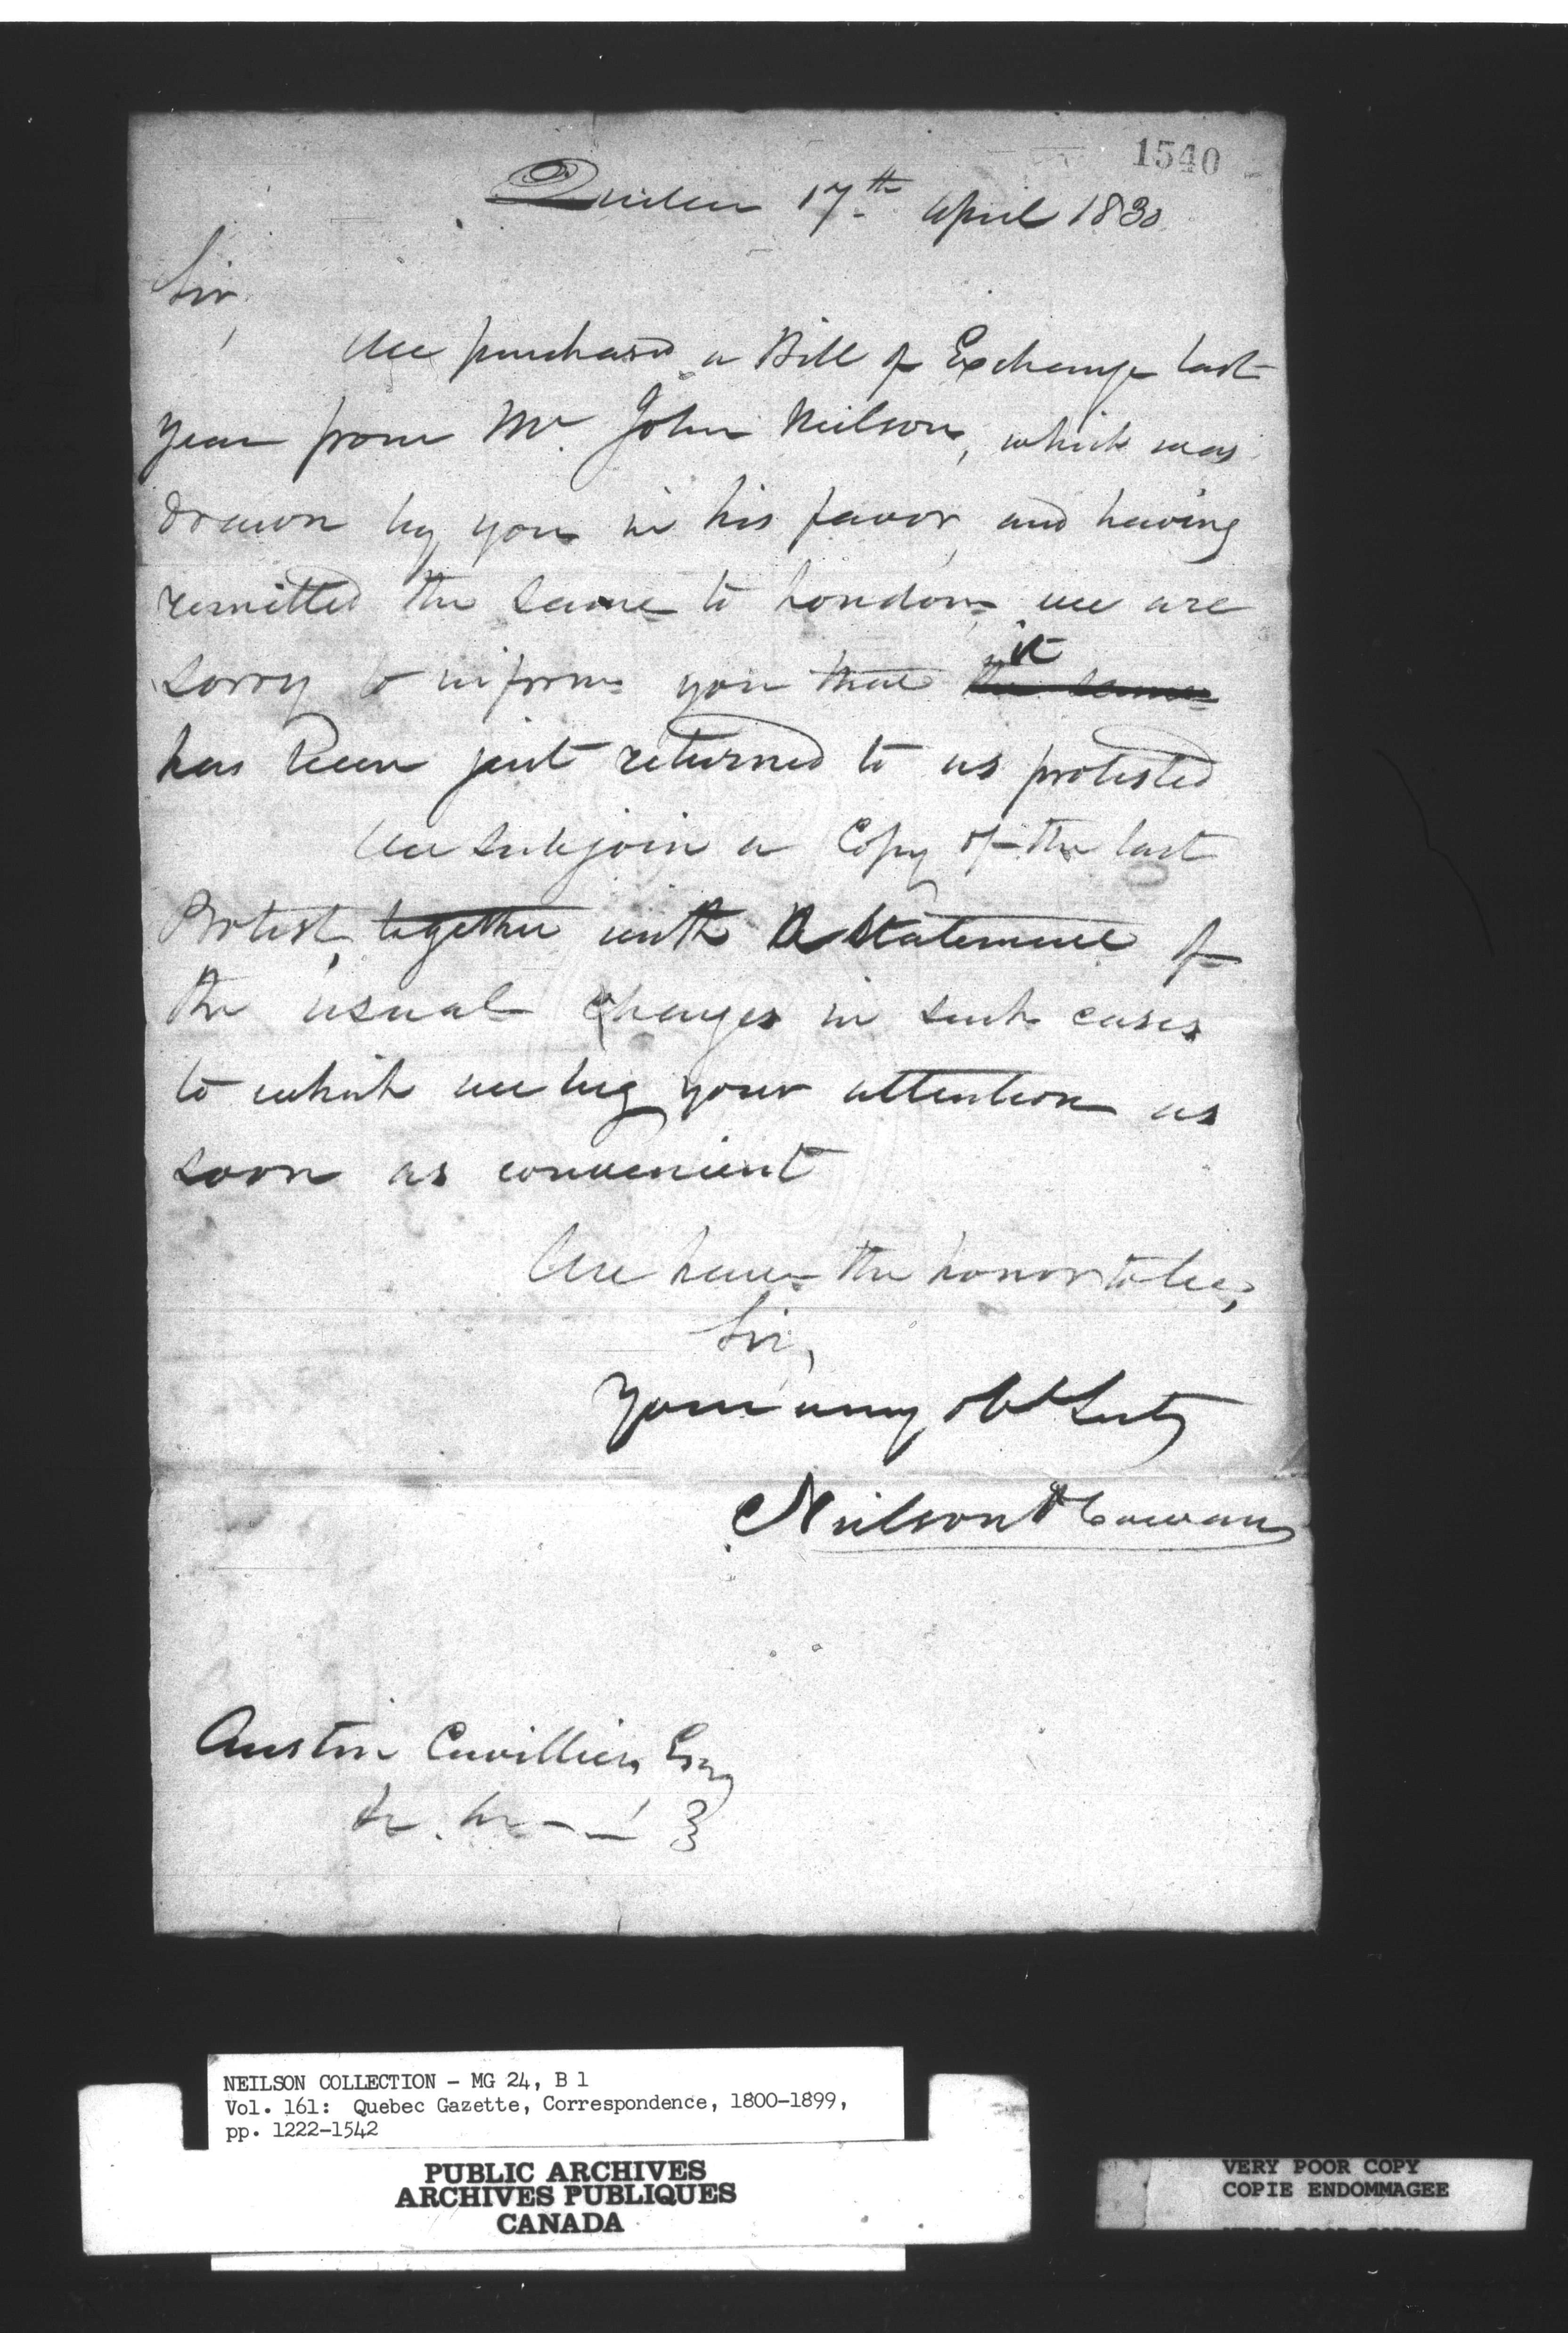 1540
Quebec 17th April 1830
Sir,
We purchased a Bill of Exchange last
year from Mr. John Neilson, which was
drawn by you in his favor, and having
remitted the same to London, we are
sorry to inform you that the same it
has been just returned to us protested
We subjoin a Copy of the last
Protest, together with A Statement of
the usual Charges in such cases
to which we beg your attention as
soon as convenient
We have the honor to be,
Sir,
Your many Obt Servts
Neilson & Cowan
Austin Cuvillier, Esq
NEILSON COLLECTION - MG 24, B 1
Vol. 161: Quebec Gazette, Correspondence, 1800-1899,
pp. 1222-1542
PUBLIC ARCHIVES
ARCHIVES PUBLIQUES
CANADA
VERY POOR COPY
COPIE ENDOMMAGEE
VERY POOR COPY